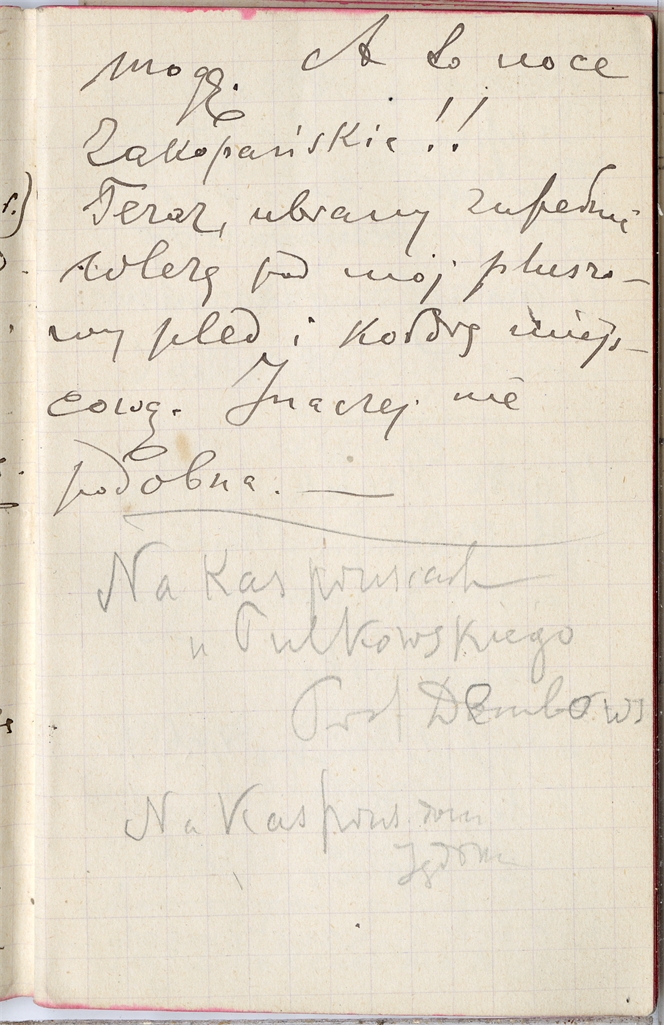 mogę. A to noce
Zakopańskie!!
Teraz, ubrany zupełnie
wlezę pod mój pluszo-
wy pled i kołdrę miejs-
cową. Inaczej nie
podobna. —
Na Kasprusiach
u Pułkowskiego
Prof Dembows
Na Kasprus dom